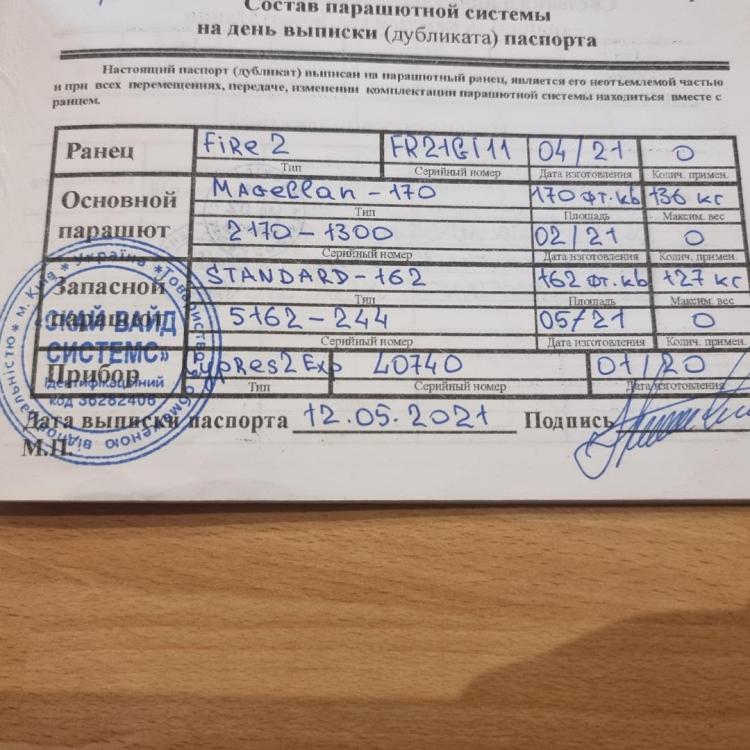 Состав парашютной системы
на день выписки (дубликата) паспорта
Настоящий паспорт (дубликат) выписан на парашютный ранец, является его неотъемлемой частью
и при всех перемещениях, передаче, изменении комплектации парашютной системы находиться вместе с
ранцем.
Ранец Fire 2 FR21GI11 04/21 0
Тип Серийный номер Дата изготовления Колич. примен.
Основной парашют Magellan-170 170 фт.кв 136 кг
Тип Площадь Максим. вес
2170-1300 02/21 0
Серийный номер Дата изготовления Колич. примен.
Запасной парашют STANDARD-162 162 фт.кв 127 кг
Тип Площадь Максим. вес
5162-244 05/21 0
Серийный номер Дата изготовления Колич. примен.
Прибор Cypres2 Exp 40740 01/20
Тип Серийный номер Дата изготовления
Дата выписки паспорта 12.05.2021 Подпись
М.П.
* м. Київ * Україна * Товариство з обмеженою відповідальністю
СКАЙ ВАЙД
СИСТЕМС»
Ідентифікаційний
код 36262408